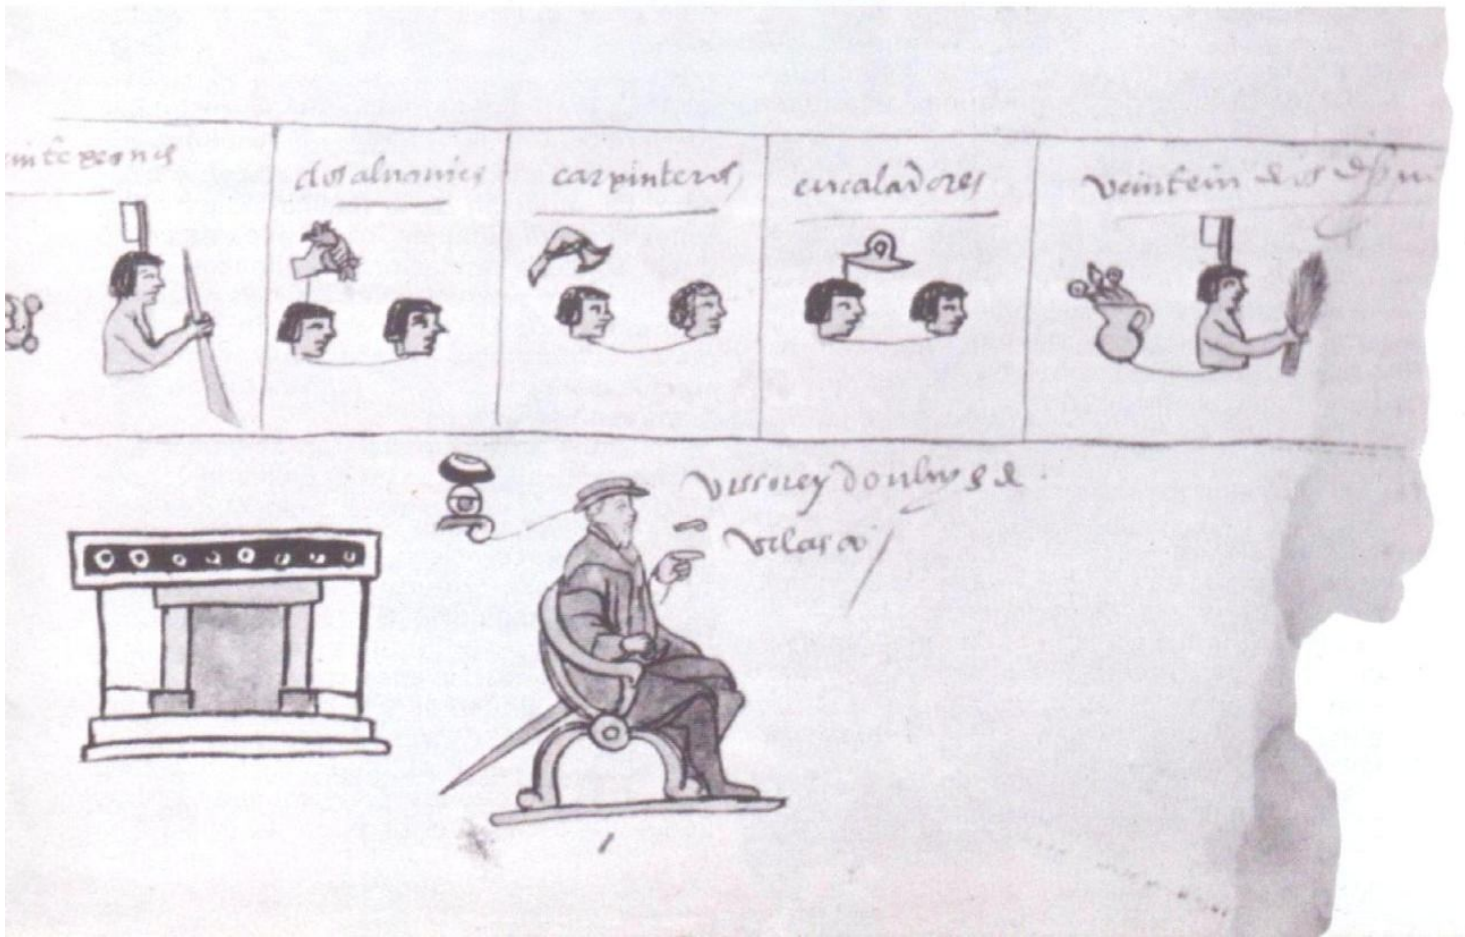 einte peones
dos aluanies
carpinteros
encaladores
veinte indios
visorrey don luys de
velasco